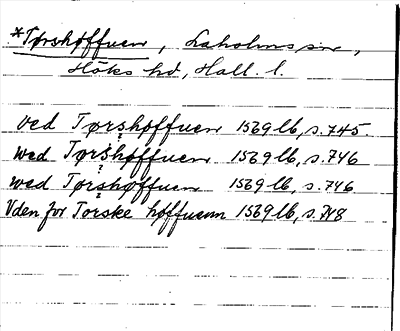 *Tørshøffuen, Laholms sn,
Höks hd, Hall. l.
ved Tørshøffuen 1569 lb, s. 745.
wed Tørshøffuen 1569 lb, s. 746
wed Tørshøffuen 1569 lb, s. 746.
Vden for Torske høffuenn 1569 lb, s. 748